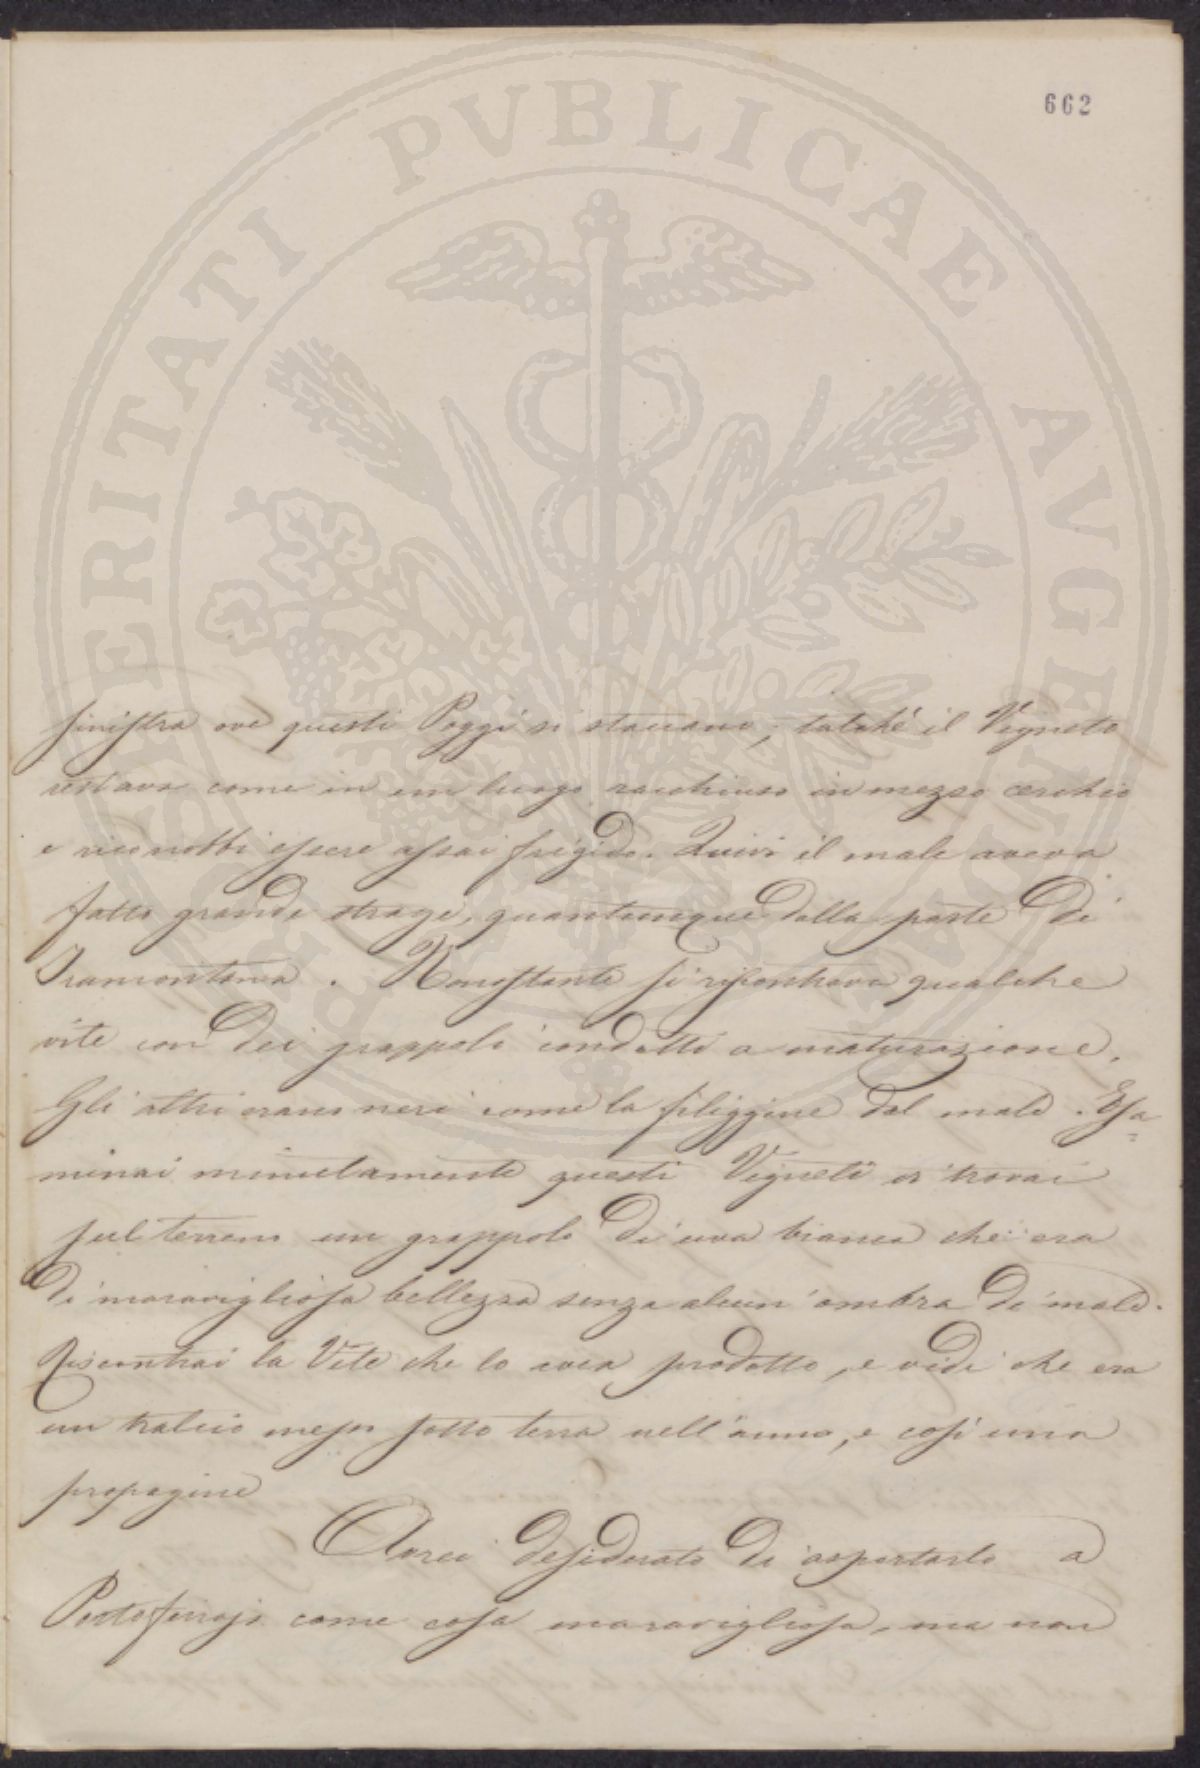 662
PROSPERITATI PVBLICAE AVGENDAE
sinistra ove questi Poggi si staccano, talchè il Vigneto
restava come in un luogo racchiuso in mezzo cerchio
e riconobbi essere assai frigido. Quivi il male aveva
fatto grande strage, quantunque dalla parte di
Tramontana. Nonostante si riscontrava qualche
vite con dei grappoli condotti a maturazione.
Gli altri erano neri come la filiggine dal male. Esa=
minai minutamente questi Vigneti e trovai
sul terreno un grappolo di uva bianca che era
di maravigliosa bellezza senza alcun'ombra di male.
Riscontrai la Vite che lo avea prodotto, e vidi che era
un tralcio messo sotto terra nell'anno, e così una
propagine
Avrei desiderato di asportarlo a
Portoferrajo come cosa maravigliosa, ma non